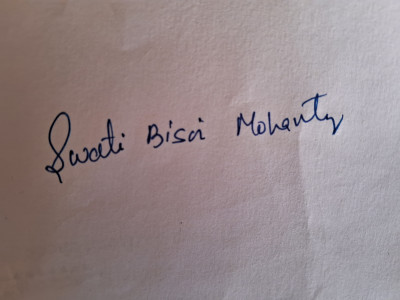 Swati Bisoi Mohanty